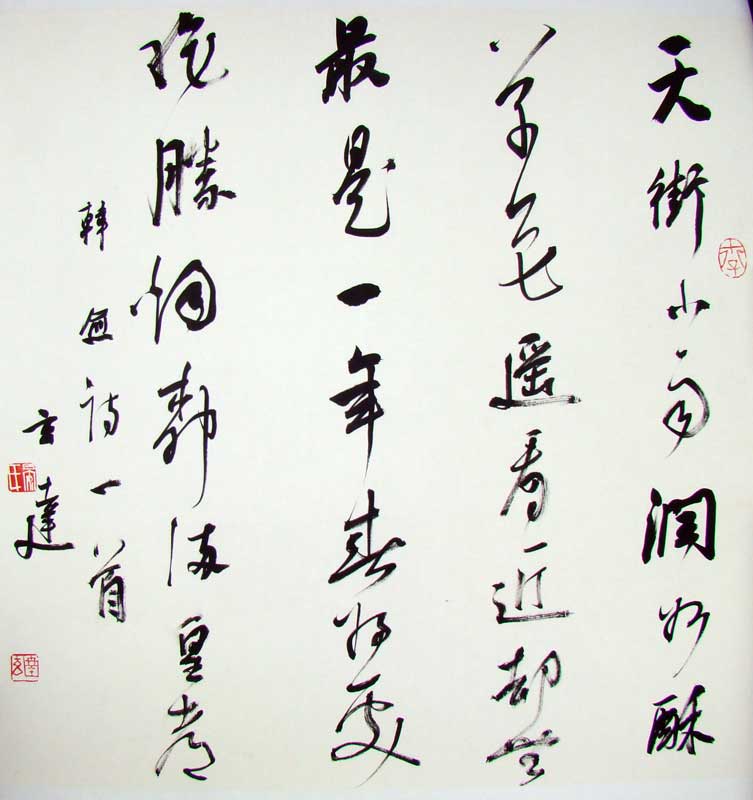 天街小雨潤如酥
草色遥看近却無
最是一年春好處
绝勝烟柳满皇都
韓愈詩一首
玄達